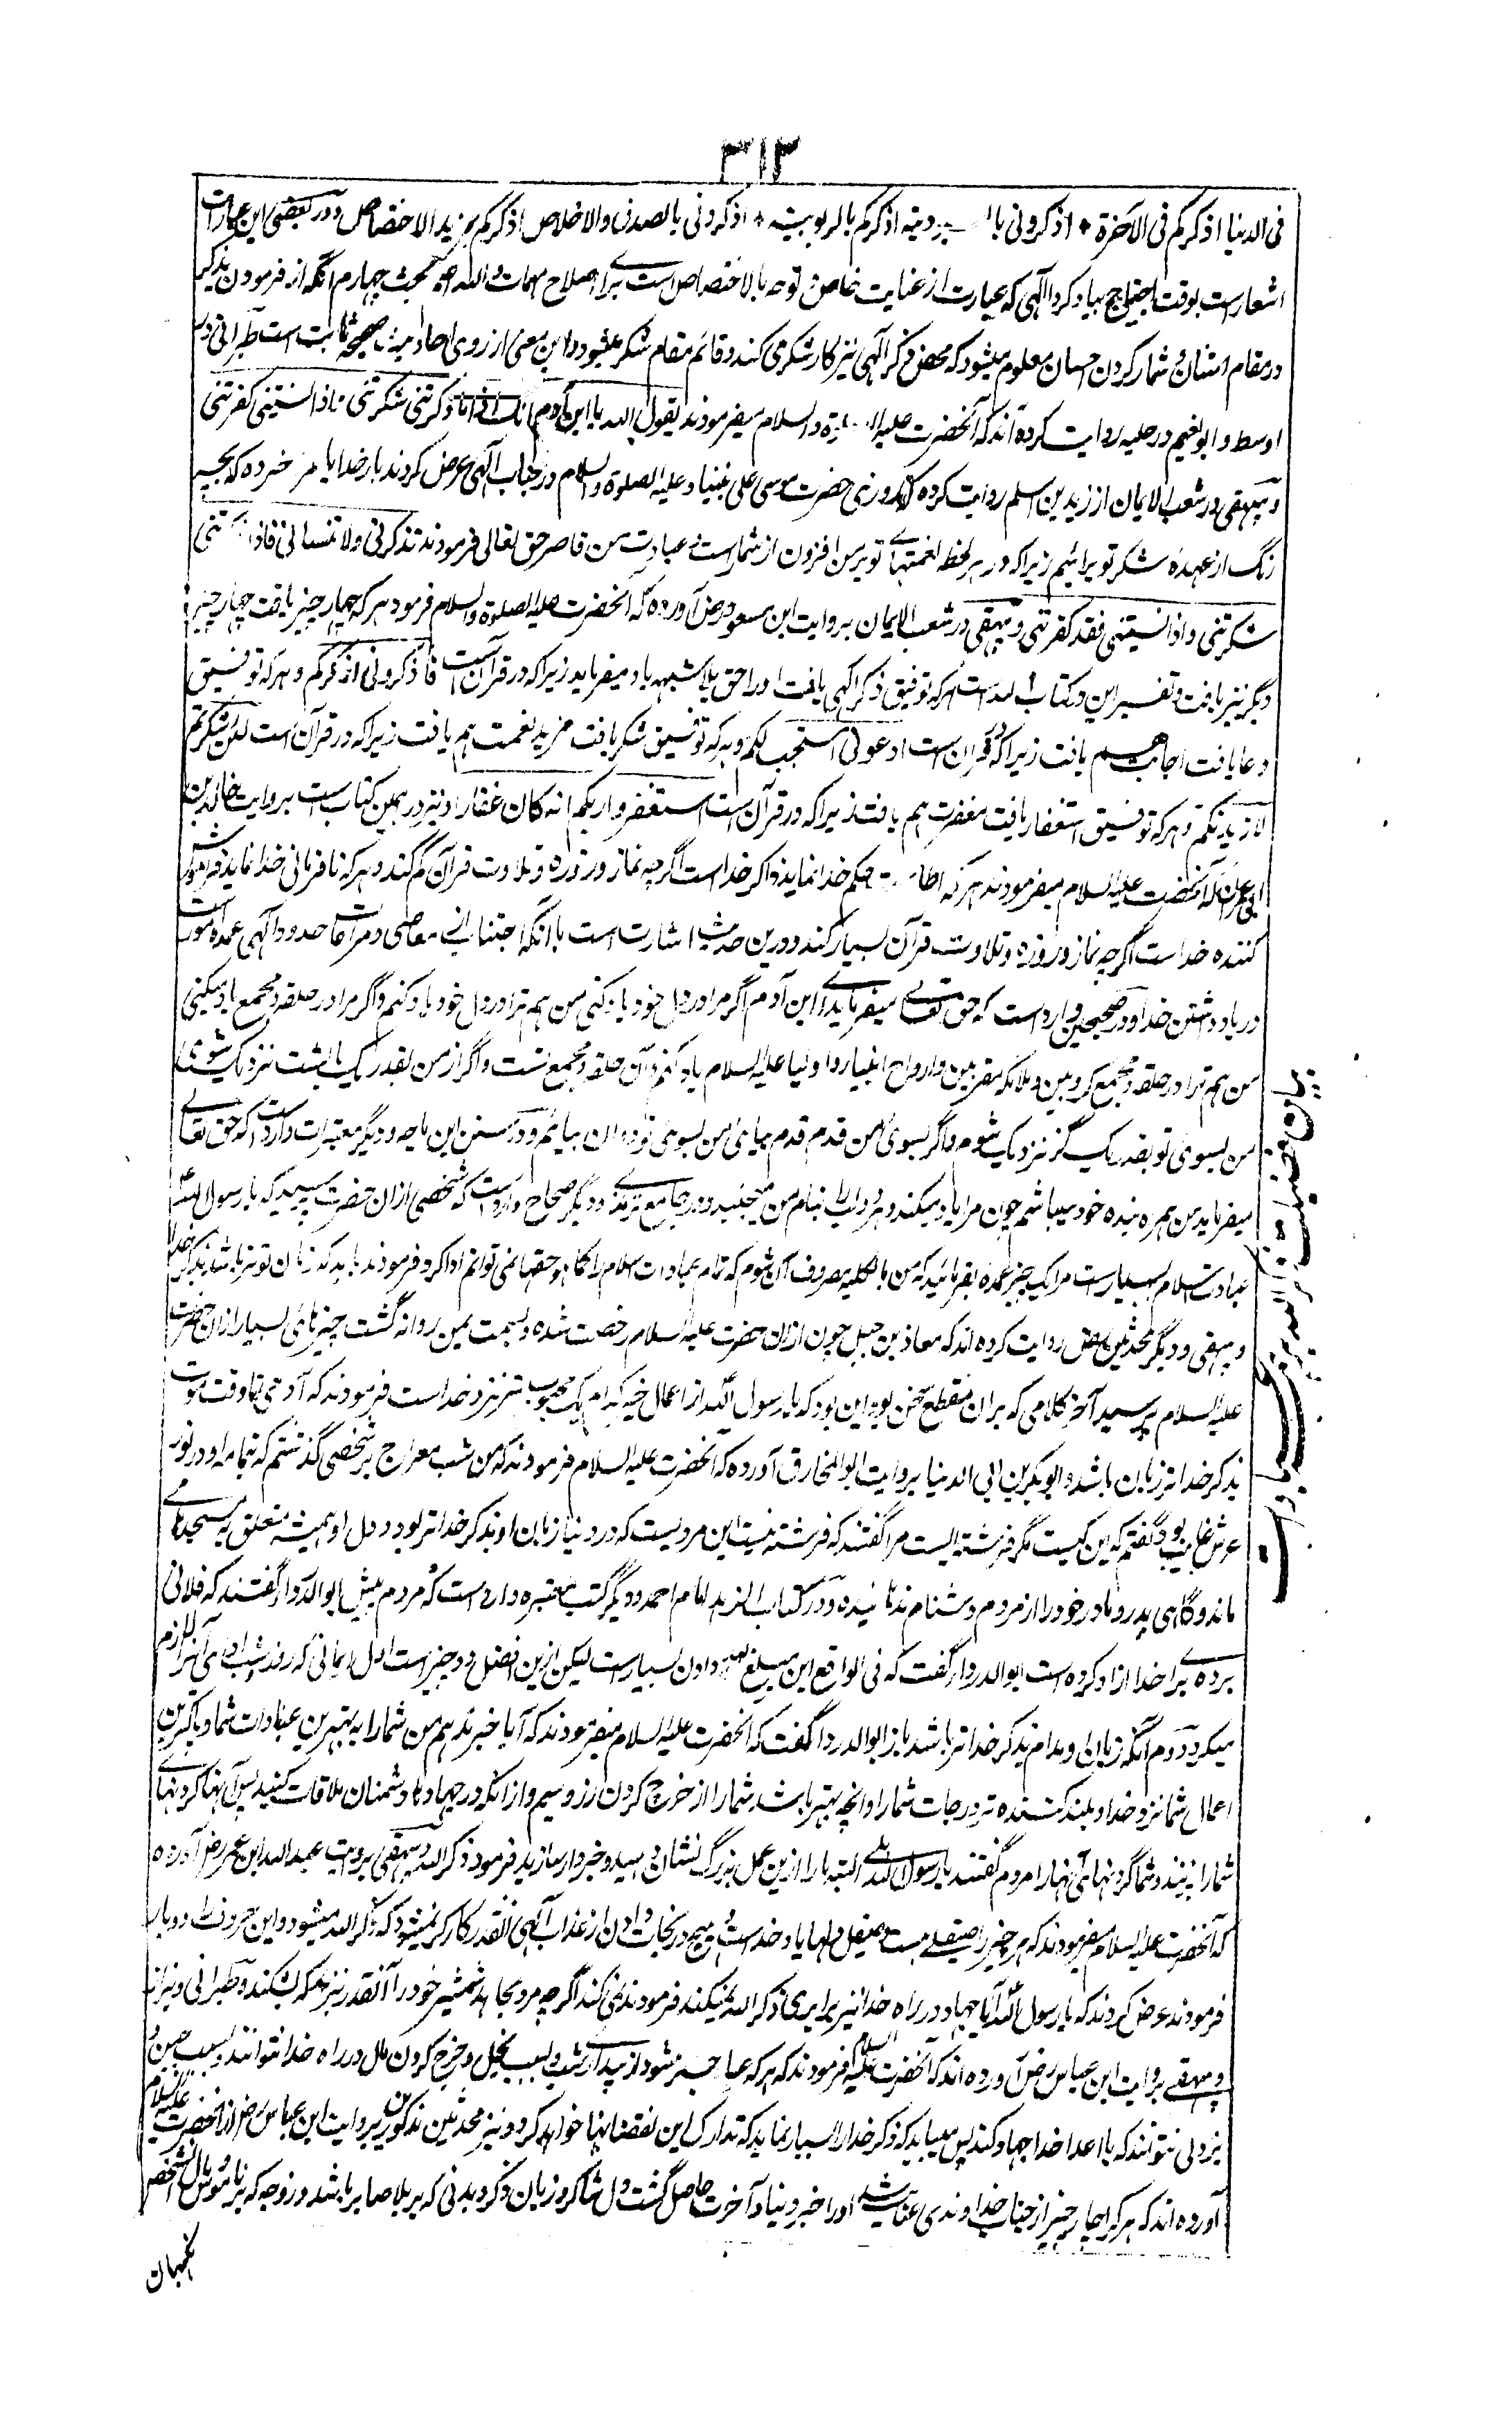 ۳۱۳
فی الدنیا اذکرکم فی الآخرة * اذکرونی اذکرکم بالربوبیة * اذکرونی بالصدق والاخلاص اذکرکم بمزید الاختصاص ودر بعضی این عبارات
اشعارست بوقت احتیاج بیاد کرد الٰهی که عبارت از عنایت خاص و توجه بالاختصاص است برای اصلاح مهمات والله مبحث چهارم آنکه از فرمودن بذکر
در مقام امتنان و شمار کردن احسان معلوم میشود که محض ذکر الٰهی نیز کار شکر می کند و قائم مقام شکر میشود و این معنی از روی احادیث صحیحه ثابت است طبرانی در
اوسط و ابونعیم در حلیه روایت کرده اند که آنحضرت علیه والسلام میفرمودند یقول الله یا ابن آدم انک اذا ذکرتنی شکرتنی واذا نسیتنی کفرتنی
و بیهقی در شعب الایمان از زید بن اسلم روایت کرده که روزی حضرت موسی علی نبینا وعلیه الصلوة والسلام در جناب الٰهی عرض کردند بار خدایا مرا خبر ده که بچه
رنگ از عهدهٔ شکر تو برائیم زیرا که در هر لحظه نعمتهای تو بر من افزون از شمارست و عبادت من قاصر حق تعالی فرمودند تذکرنی ولا تنسانی فاذا
شکرتنی واذا نسیتنی فقد کفرتنی و بیهقی در شعب الایمان بروایت ابن مسعود رض آورده که آنحضرت علیه الصلوة والسلام فرمود هر که چهار چیز یافت چهار چیز
دیگر نیز یافت و تفسیر این در کتاب الله است هر که توفیق ذکر الٰهی یافت او را حق بلا شبهه یاد میفرماید زیرا که در قرآن است فاذکرونی اذکرکم و هر که توفیق
دعا یافت اجابت هم یافت زیرا که در قرآن است ادعونی استجب لکم و هر که توفیق شکر یافت مزید نعمت هم یافت زیرا که در قرآن است لئن شکرتم
لازیدنکم و هر که توفیق استغفار یافت مغفرت هم یافت زیرا که در قرآن است استغفروا ربکم انه کان غفارا و نیز در همین کتاب است بروایت خالد بن
ابی عمران که آنحضرت علیه السلام میفرمودند هر که حکم خدا نماید ذاکر خداست اگرچه نماز و روزه و تلاوت قرآن کم کند و هر که نافرمانی خدا نماید فراموش
کننده خداست اگرچه نماز و روزه و تلاوت قرآن بسیار کند و درین حدیث اشارت است بآنکه اجتناب از معاصی و مراعات حدود الٰهی عمده امورست
در یاد داشتن خدا و در صحیحین وارد است که حق تعالی میفرماید ای ابن آدم اگر مرا در دل خود یاد کنی من هم ترا در دل خود یاد کنم و اگر مرا در حلقه و مجمع یاد میکنی
من هم ترا در حلقه و مجمع کروبین و ملائکه مقربین و ارواح انبیا و اولیا علیه السلام یاد کنم و آن حلقه و مجمع تست و اگر از من بقدر یک بالشت نزدیک شوی
من بسوی تو بقدر یک گز نزدیک شوم و اگر بسوی من قدم قدم بیائی من بسوی تو دوان بیایم و در سنن ابن ماجه و دیگر معتبرات وارد است که حق تعالی
میفرماید من همراه بنده خود میباشم چون مرا یاد میکند و هر دو لب بنام من میجنبند و در جامع ترمذی و دیگر صحاح وارد است که شخصی از ان حضرت پرسید که یا رسول الله
عبادت اسلام بسیارست مرا یک چیز عمده بفرمائید که من بالکلیه مصروف آن شوم که تمام عبادات اسلام را کما هو حقها نمی توانم ادا کرد فرمودند باید که زبان تو تر باشد بذکر خدا
و بیهقی و دیگر محدثین روایت کرده اند که معاذ بن جبل چون از ان حضرت علیه السلام رخصت شده و بسمت یمن روانه گشت چیزهای بسیار از ان حضرت
علیه السلام پرسید آخر کلامی که بران منقطع سخن بود این بود که یا رسول الله از اعمال خیر کدام یک محبوب تر نزد خداست فرمودند که آدمی تا وقت موت
بذکر خدا تر زبان باشد و ابوبکر بن ابی الدنیا بروایت ابوالمخارق آورده که آنحضرت علیه السلام فرمودند که من شب معراج بر شخصی گذشتم که بتمامه او در نور
عرش غایب بود گفتم که این کیست مگر فرشته ایست مرا گفتند که فرشته نیست این مردیست که در دنیا زبان او بذکر خدا تر بود و دل او همیشه متعلق به مسجدهای
ماند و گاهی پدر و مادر خود را از مردم دشنام ندهانیده و در کتاب الزهد امام احمد و دیگر کتب معتبره وارد است که مردم پیش ابوالدردا گفتند که فلانی
برده برای خدا آزاد کرده است ابوالدردا گفت که فی الواقع این مبلغ دادن بسیارست لیکن ازین افضل دو چیز است اول ایمانی که روز و شب آدمی آنرا لازم
میگیرد دوم آنکه زبان او مدام بذکر خدا تر باشد باز ابوالدردا گفت که آنحضرت علیه السلام میفرمودند که آیا خبر ندهم من شما را به بهترین عبادات شما و پاکترین
اعمال شما نزد خدا و بلند کننده تر درجات شما را و آنچه بهتر باشد شما را از خرج کردن زر و سیم و از آنکه در جهاد با دشمنان ملاقات کنید پس آنها گردنهای
شما را بزنند و شما گردنهای آنها را مردم گفتند یا رسول الله بلی البته ما را ازین عمل بزرگ نشان دهید و خبردار سازید فرمود ذکر الله و بیهقی بروایت عبدالله ابن عمر رض آورده
که آنحضرت علیه السلام میفرمودند که هر چیز را صیقلی هست و صیقل دلها یاد خداست و هیچ در نجات دادن از عذاب الٰهی آنقدر کارگر نمیشود که ذکر الله میشود و این حرف را دو بار
فرمودند عرض کردند که یا رسول الله آیا جهاد در راه خدا نیز برابری ذکر الله نمیکند فرمودند نمی کند اگرچه مرد مجاهد شمشیر خود را آنقدر بزند که بشکند و طبرانی و بزار
و بیهقی بروایت ابن عباس رض آورده اند که آنحضرت علیه السلام فرمودند که هر که عاجز شود از بیداری شب و بسبب بخل و خرج کردن مال در راه خدا نتواند و بسبب جبن و
بزدلی نتواند که با اعداء خدا جهاد کند پس میباید که ذکر خدا را بسیار نماید که تدارک این نقصانها خواهد کرد و نیز محدثین مذکورین بروایت ابن عباس رض از آنحضرت علیه السلام
آورده اند که هر کرا چهار چیز از جناب خداوندی عنایت شد او را خیر دنیا و آخرت حاصل گشت دل شاکر و زبان ذاکر و بدنی که بر بلا صابر باشد و زوجه که بر ناموس و مال شخص
نگهبان
بیان فضیلت ذکر الله بر جمیع عبادات